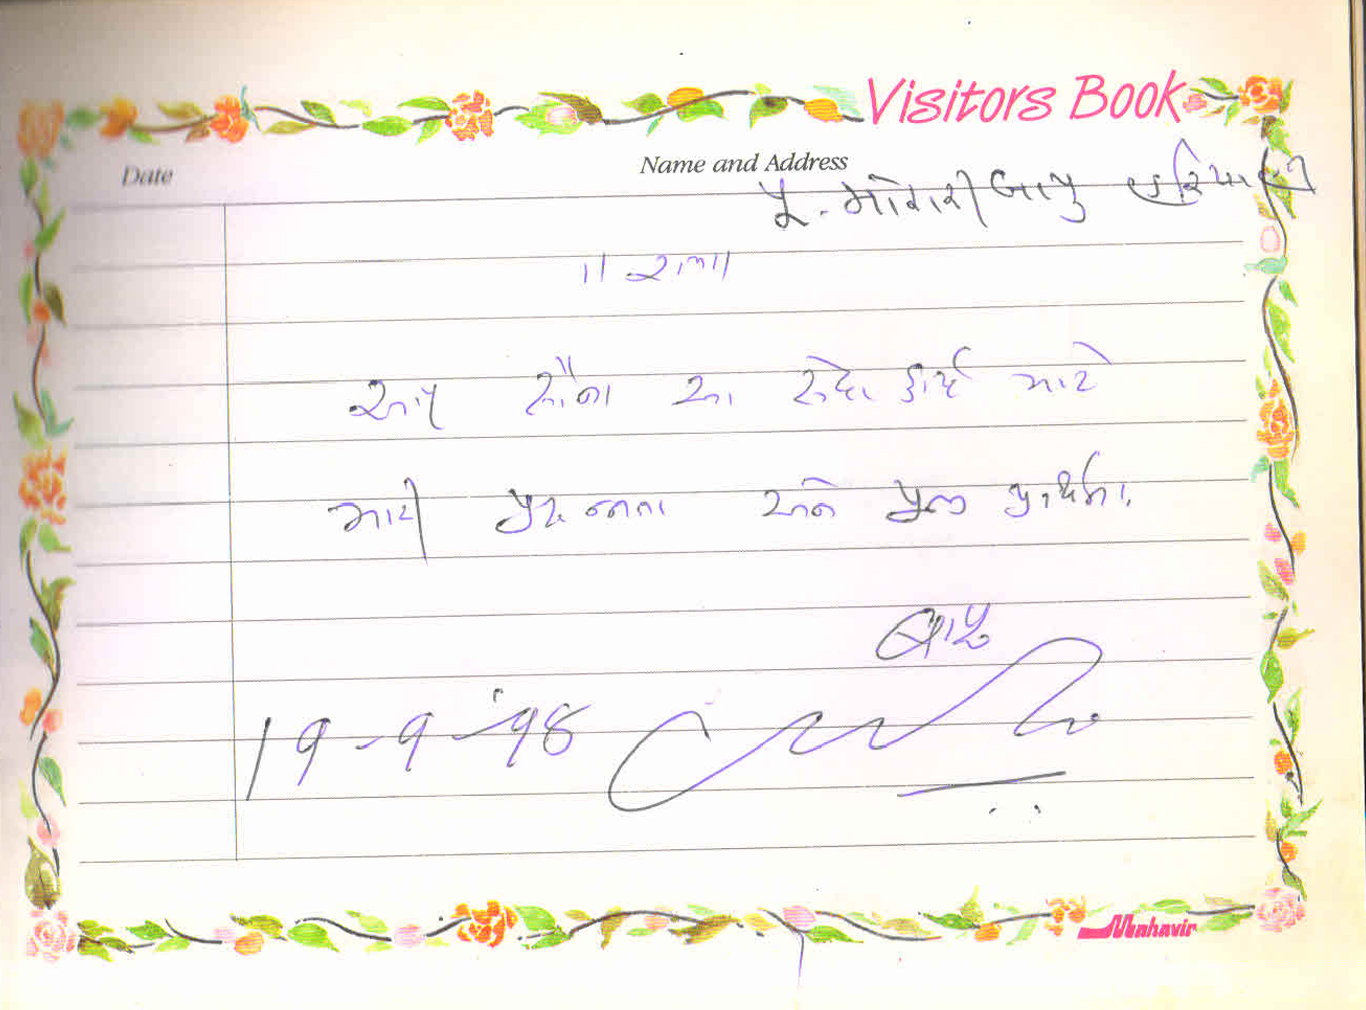 Visitors Book
Date
Name and Address
પૂ. મોરારીબાપુ હરિયાણી
॥ રામ ॥
આપ સૌના આ સેવા કાર્ય માટે
મારી પ્રસન્નતા અને પ્રભુ પ્રાર્થના.
19-9-'98
Mahavir